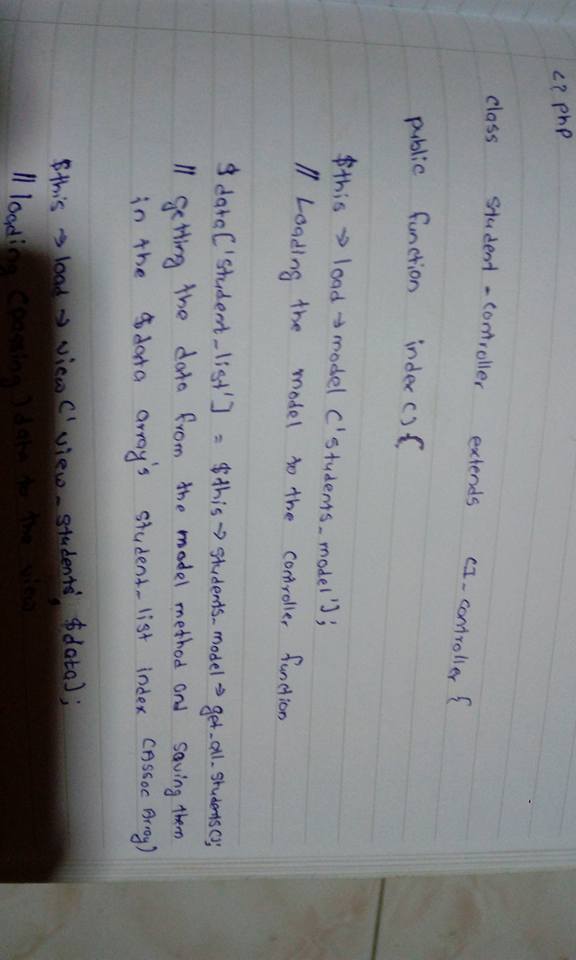 <? php
class student-controller extends CI_controller {
public function index () {
$this → load → model ('students_model');
// Loading the model to the controller function
$data['student_list'] = $this → students_model → get_all_students();
// getting the data from the model method and saving them
in the $data array's student_list index (Assoc Array)
$this → load → view ('view_students', $data);
// loading (passing) data to the view